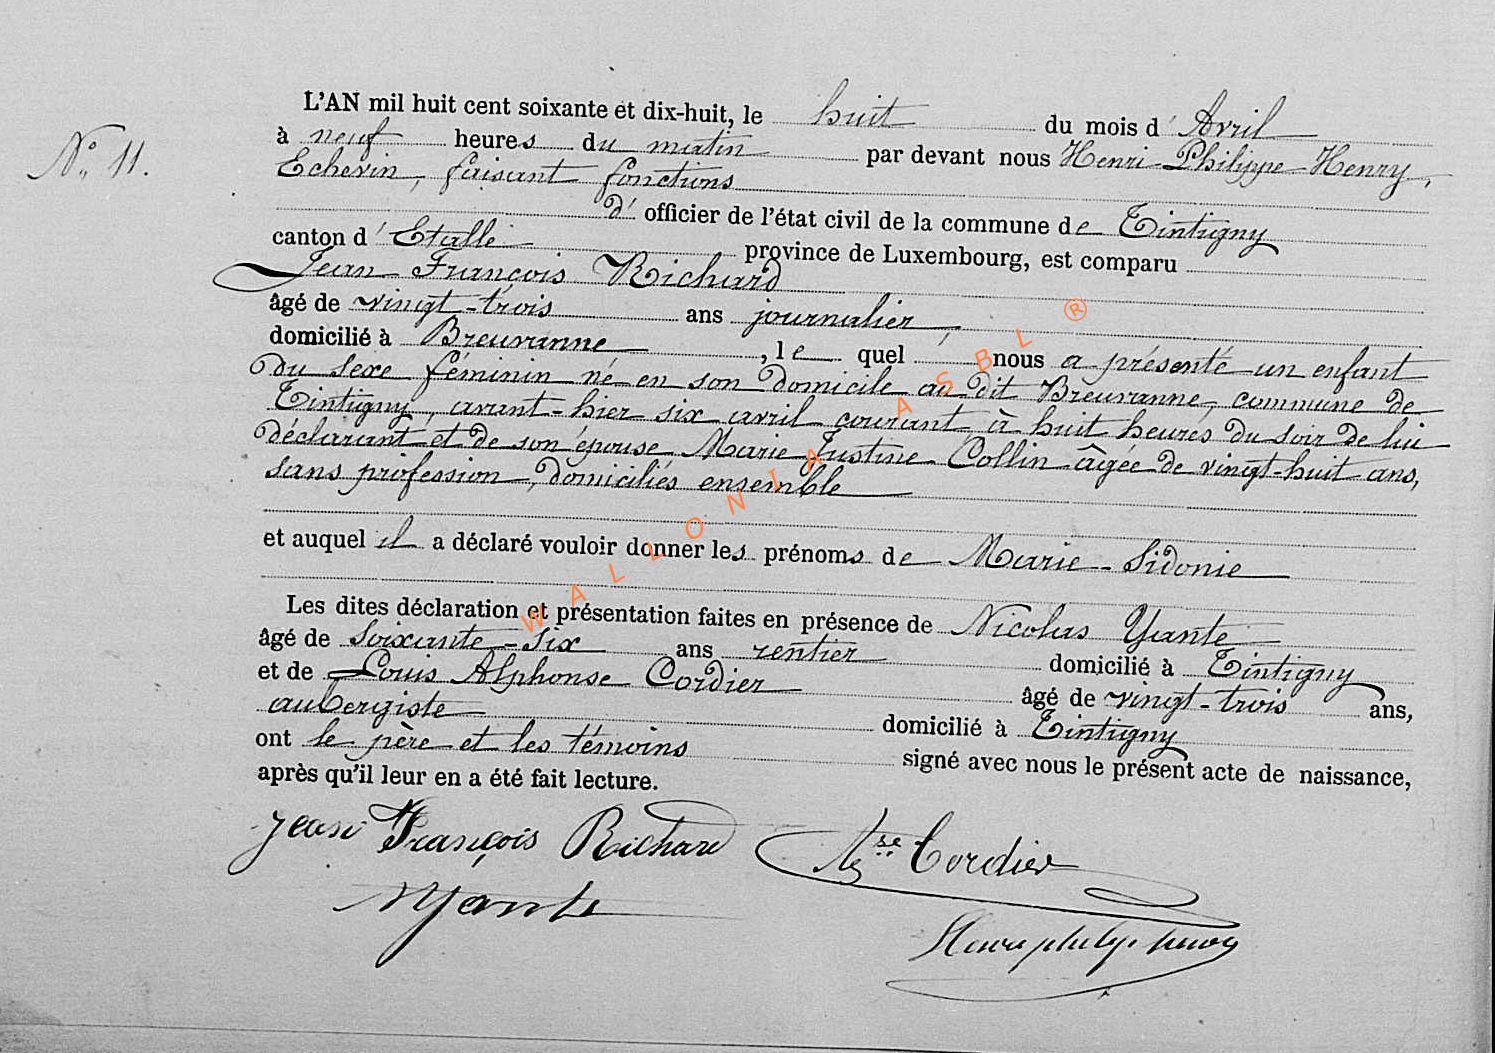 N° 11.
L'AN mil huit cent soixante et dix-huit, le huit du mois d' Avril
à neuf heures du matin par devant nous Henri Philippe Henry,
Echevin, faisant fonctions
d' officier de l'état civil de la commune de Tintigny
canton d' Etalle province de Luxembourg, est comparu
Jean François Richard
âgé de vingt-trois ans journalier,
domicilié à Breuvanne, le quel nous a présenté un enfant
du sexe féminin né en son domicile au dit Breuvanne, commune de
Tintigny, avant-hier six avril courant à huit heures du soir de lui
déclarant et de son épouse Marie Justine Collin âgée de vingt-huit ans,
sans profession, domiciliés ensemble
et auquel il a déclaré vouloir donner les prénoms de Marie-Sidonie
Les dites déclaration et présentation faites en présence de Nicolas Yante
âgé de soixante-six ans rentier domicilié à Tintigny
et de Louis Alphonse Cordier âgé de vingt-trois ans,
aubergiste domicilié à Tintigny
ont le père et les témoins signé avec nous le présent acte de naissance,
après qu'il leur en a été fait lecture.
Jean François Richard
Cordier
NYante
WALLONIA ASBL ®